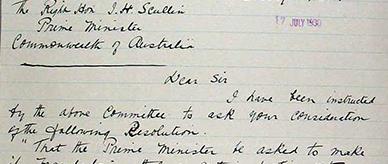 The Right Hon J. H. Scullin
Prime Minister
17 JULY 1930
Commonwealth of Australia
Dear Sir
I have been instructed
by the above Committee to ask your consideration
of the following Resolution.
"That the Prime Minister be asked to make